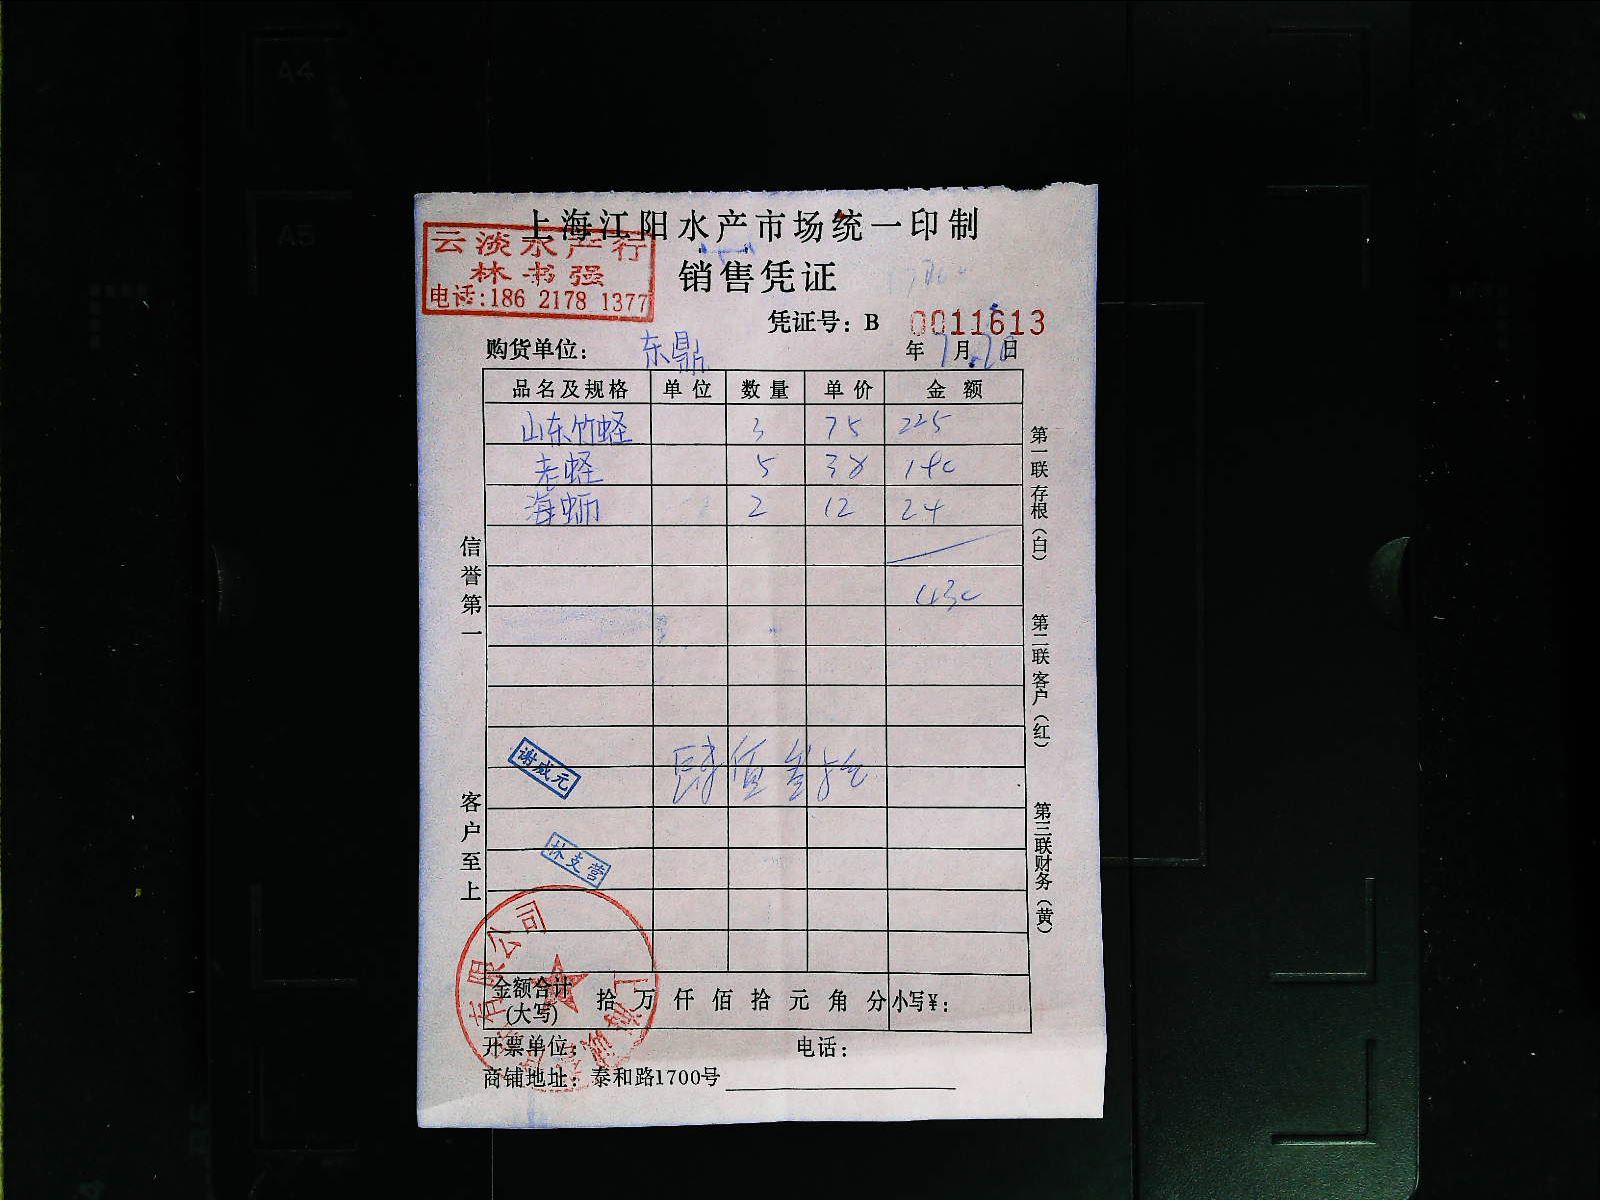 上海江阳水产市场统一印制
云淡水产行
林书强
电话:186 2178 1377
销售凭证
凭证号: B 0011613
购货单位: 东鼎 年 7月20日
品名及规格 单位 数量 单价 金额
山东竹蛏 3 75 225
老蛏 5 38 190
海蛎 2 12 24
430
信誉第一
客户至上
第一联存根(白)
第二联客户(红)
第三联财务(黄)
肆佰叁拾元
谢成元
林支营
有限公司
金额合计(大写) 拾 万 仟 佰 拾 元 角 分 小写¥:
开票单位: 电话:
商铺地址: 泰和路1700号